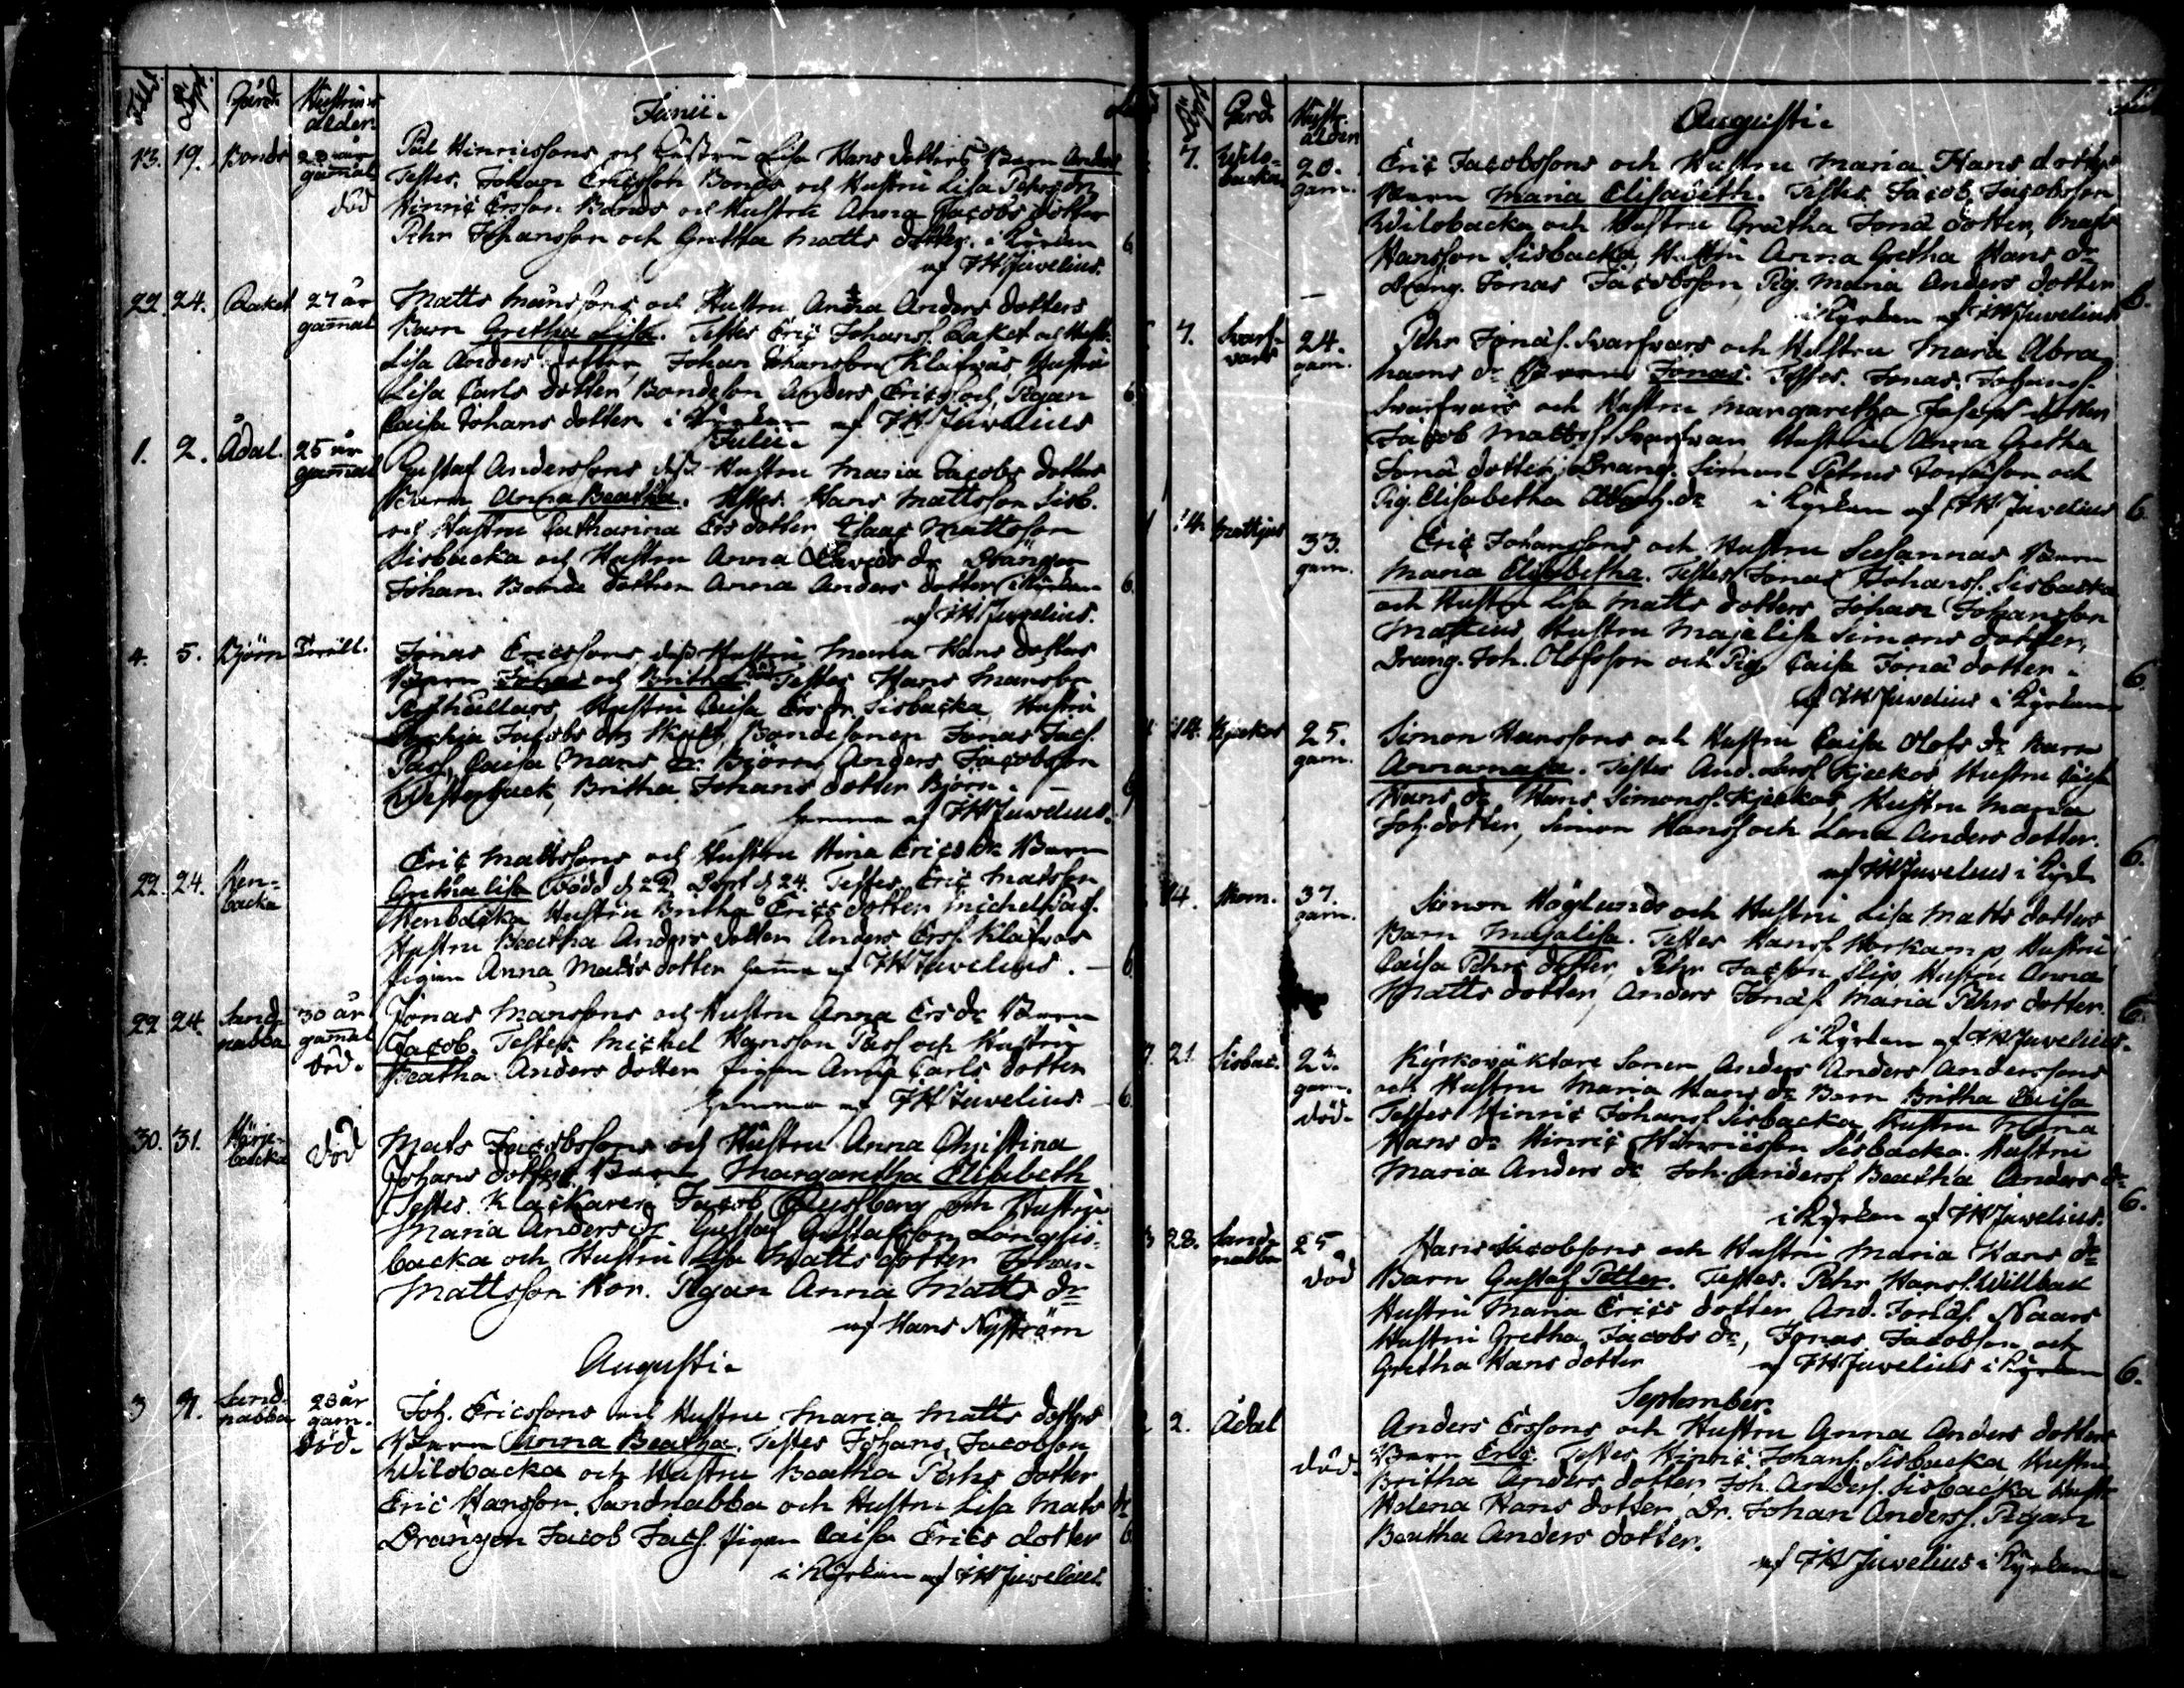 Född. Döpt. Gård. Hustruns ålder
Junii.
13. 19. Bonds gamal död
Hinricssons och Hustru Lisa Hans dotters Barn Anders
Testes. Johan Ericsson Bonds och Hustru Lisa Pehrs dr
Hinric Ersson Bonds och Hustru Anna Jacobs dotter
Pehr Johansson och Gretha Matts dotter. i Kyrkan
af JHJuvelius.
22. 24. Raket 27 år gamal
Matts Månssons och Hustru Anna Anders dotters
Barn Gretha Lisa. Testes Eric Johanss. Raket och Hustr.
Lisa Anders dotter Johan Johansson Klafvus Hustru
Lisa Carls dotter Bondeson Anders Ericss och Pigan
Caisa Johans dotter i Kyrkan af JHJuvelius
Julii.
1. 2. Ådal. 25 år gamal
Gustaf Anderssons dess Hustru Maria Jacobs dotters
Barn Anna Beatha. Testes. Hans Mattsson Sisb.
och Hustru Catharina Ers dotter, Mattsson
Sisbacka och Hustru Anna Davids dr Drängen
Johan Anna Anders dotter i Kyrkan
af JHJuvelius.
4. 5. Björn Twill.
Jonas Ericssons dess Hustru Maria Hans dotters
Barn Johan och Britha. Testes Hans Mansson
Hustru Caisa Ers dr. Sisbacka, Hustru
Jacobs dr Bondesonen Jonas Jacs.
Caisa Mans dr. Björn, Anders Jacobsson
Westerback, Britha Johans dotter Björn.
hemma af JHJuvelius.
22. 24. Kenbacka
Eric Mattssons och Hustru Erics dr Barn
Gretha Lisa Född d. 22 Döpt d. 24. Testes, Eric Matsson
Kenbacka Hustru Britha Erics dotter, Michel
Hustru Beatha Anders dotter Anders Erss. Klafvus
Pigan Anna Matts dotter hema af JHJuvelius.
22 24. Sandnabba 30 år gamal död.
Jonas Manssons och Hustru Anna Ers dr Barn
Jacob. Testes. Michel Hansson Pass och Hustru
Beatha Anders dotter, Pigan Anna Carls dotter
hemma af JHJuvelius. 6.
30. 31. död
Mats Jacobssons och Hustru Anna Christina
Johans dotters Barn Margaretha Elisabeth
Testes. Klackaren Jacob och Hustru
Maria Anders dr Gustaf Gustafsson Långsis-
backa och Hustru Lisa Matts dotter Johan
Mattsson Kor. Pigan Anna Matts dr
af Hans Nyström
Augusti.
3 4. Sandnabba 28 år gam. död.
Joh. Ericssons och Hustru Maria Matts dotters
Barn Anna Beatha. Testes Johans Jacobsson
Wilobacka och Hustru Beatha Pehrs dotter
Eric Hansson Sandnabba och Hustru Lisa Mats dr
Drängen Jacob Jacs. Pigan Caisa Erics dotter
i Kyrkan af JHJuvelius.
Gård. Hustr. ålder
Augusti.
7. Wilobacka 20. gam.
Eric Jacobssons och Hustru Maria Hans dotters
Barn Maria Elisabeth. Testes. Jacob Jacobsson
Wilobacka och Hustru Gretha Jona dotter, Mats
Hansson Sisbacka Hustru Anna Gretha Hans dr
Dräng. Jonas Jacobsson, Pig. Maria Anders dotter
i Kyrkan af JHJuvelius 6.
7. Svarfvars 24. gam.
Pehr Jonas. Svarfvars och Hustru Maria Abra
hams dr Barn Jonas. Testes. Jonas Johans.
Svarfvars och Hustru Margaretha Josephs dotter
Jacob Mattss. Svarfvars Hustru Anna Gretha
Jona dotter, Dräng. Simon Petrus Jonasson och
Pig. Elisabetha i Kyrkan af JHJuvelius 6.
14. Mattjus 33. gam.
Eric Johanssons och Hustru Susannas Barn
Maria Elisabetha. Testes Jonas Johanss. Sisbacka
och Hustru Lisa Matts dotters Johan Johansson
Mattius, Hustru Majalisa Simons dotter,
Dräng. Joh. Olofsson och Pig. Caisa Jona dotter.
af JHJuvelius i Kyrkan 6.
14. Kjeckos 25. gam.
Simon Hanssons och Hustru Caisa Olofs dr Barn
Annamaja. Testes And. Kjeckos Hustru Caisa
Hans dr Hans Simonss. Kjeckos, Hustru Maria
Joh. dotter, Simon Hanss och Lena Anders dotter.
af JHJuvelius i Kyrk. 6.
14. 37. gam.
Simon Höglunds och Hustru Lisa Matts dotters
Barn Majalisa. Testes Hans Horkamp, Hustru
Caisa Pehrs dotter, Pehr Jacsson Slip, Hustru Anna
Matts dotter, Anders Jonas. Maria Pehrs dotter.
i Kyrkan af JHJuvelius. 6.
21. Sisbac. 23. gam. död.
Kyrkowäktare Sonen Anders Anders Anderssons
och Hustru Maria Hans dr Barn Britha Caisa
Testes Hinric Johans. Sisbacka, Hustru Maria
Hans dr Hinric Hinricsson Sisbacka. Hustru
Maria Anders dr Joh. Anderss. Beatha Anders dr
i Kyrkan af JHJuvelius. 6.
28. Sandnabba 25 död
Hans Jacobssons och Hustru Maria Hans dr
Barn Gustaf Petter. Testes. Pehr Hanss. Willback
Hustru Maria Erics dotter, And. Jonas. Naars
Hustru Gretha Jacobs dr, Jonas Jacobson och
Gretha Hans dotter af JHJuvelius i Kyrkan 6.
September.
2. Ådal död.
Anders Erssons och Hustru Anna Anders dotters
Barn Eric. Testes Hinric Johans. Sisbacka Hustru
Britha Anders dotter Joh. Anders. Sisbacka Hustr.
Helena Hans dotter Dr. Johan Anderss. Pigan
Beatha Anders dotter.
af JHJuvelius i Kyrkan